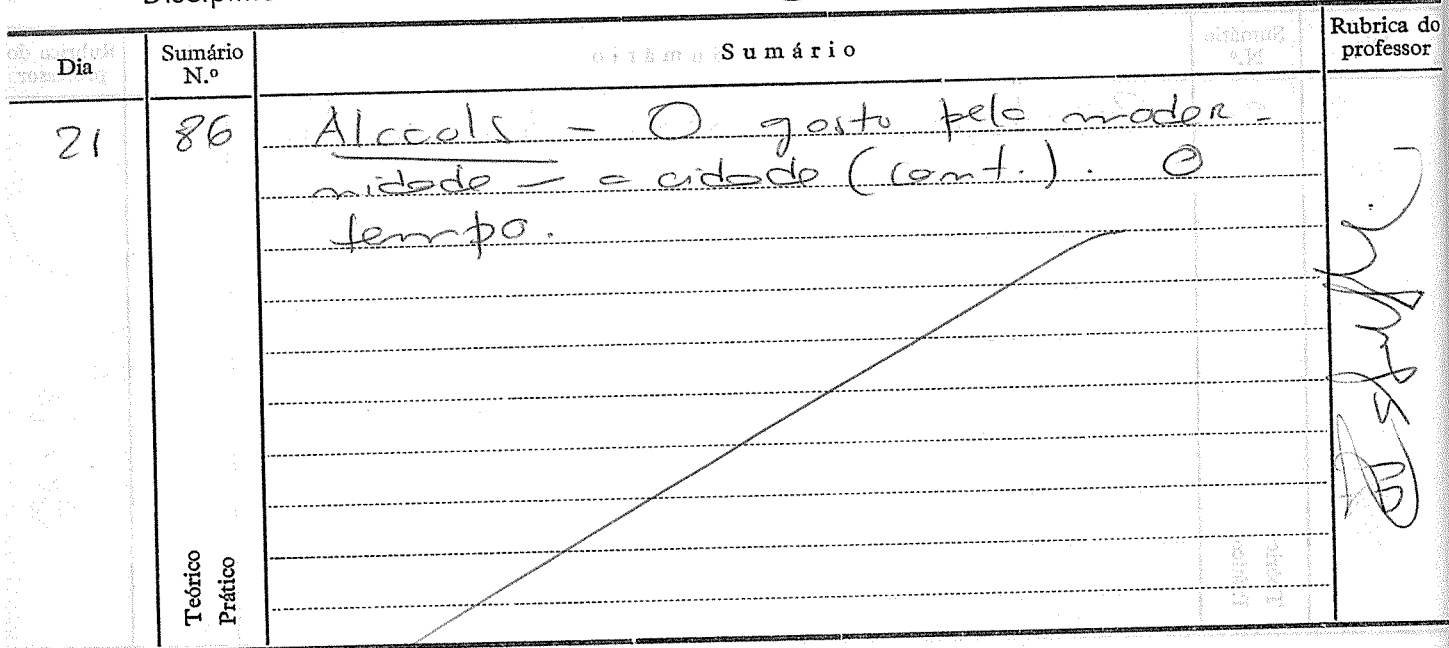 Dia
Sumário N.º
Sumário
Rubrica do professor
21
86
Alcools - O gosto pela moder-
nidade - a cidade (cont.). O
tempo.
Teórico
Prático